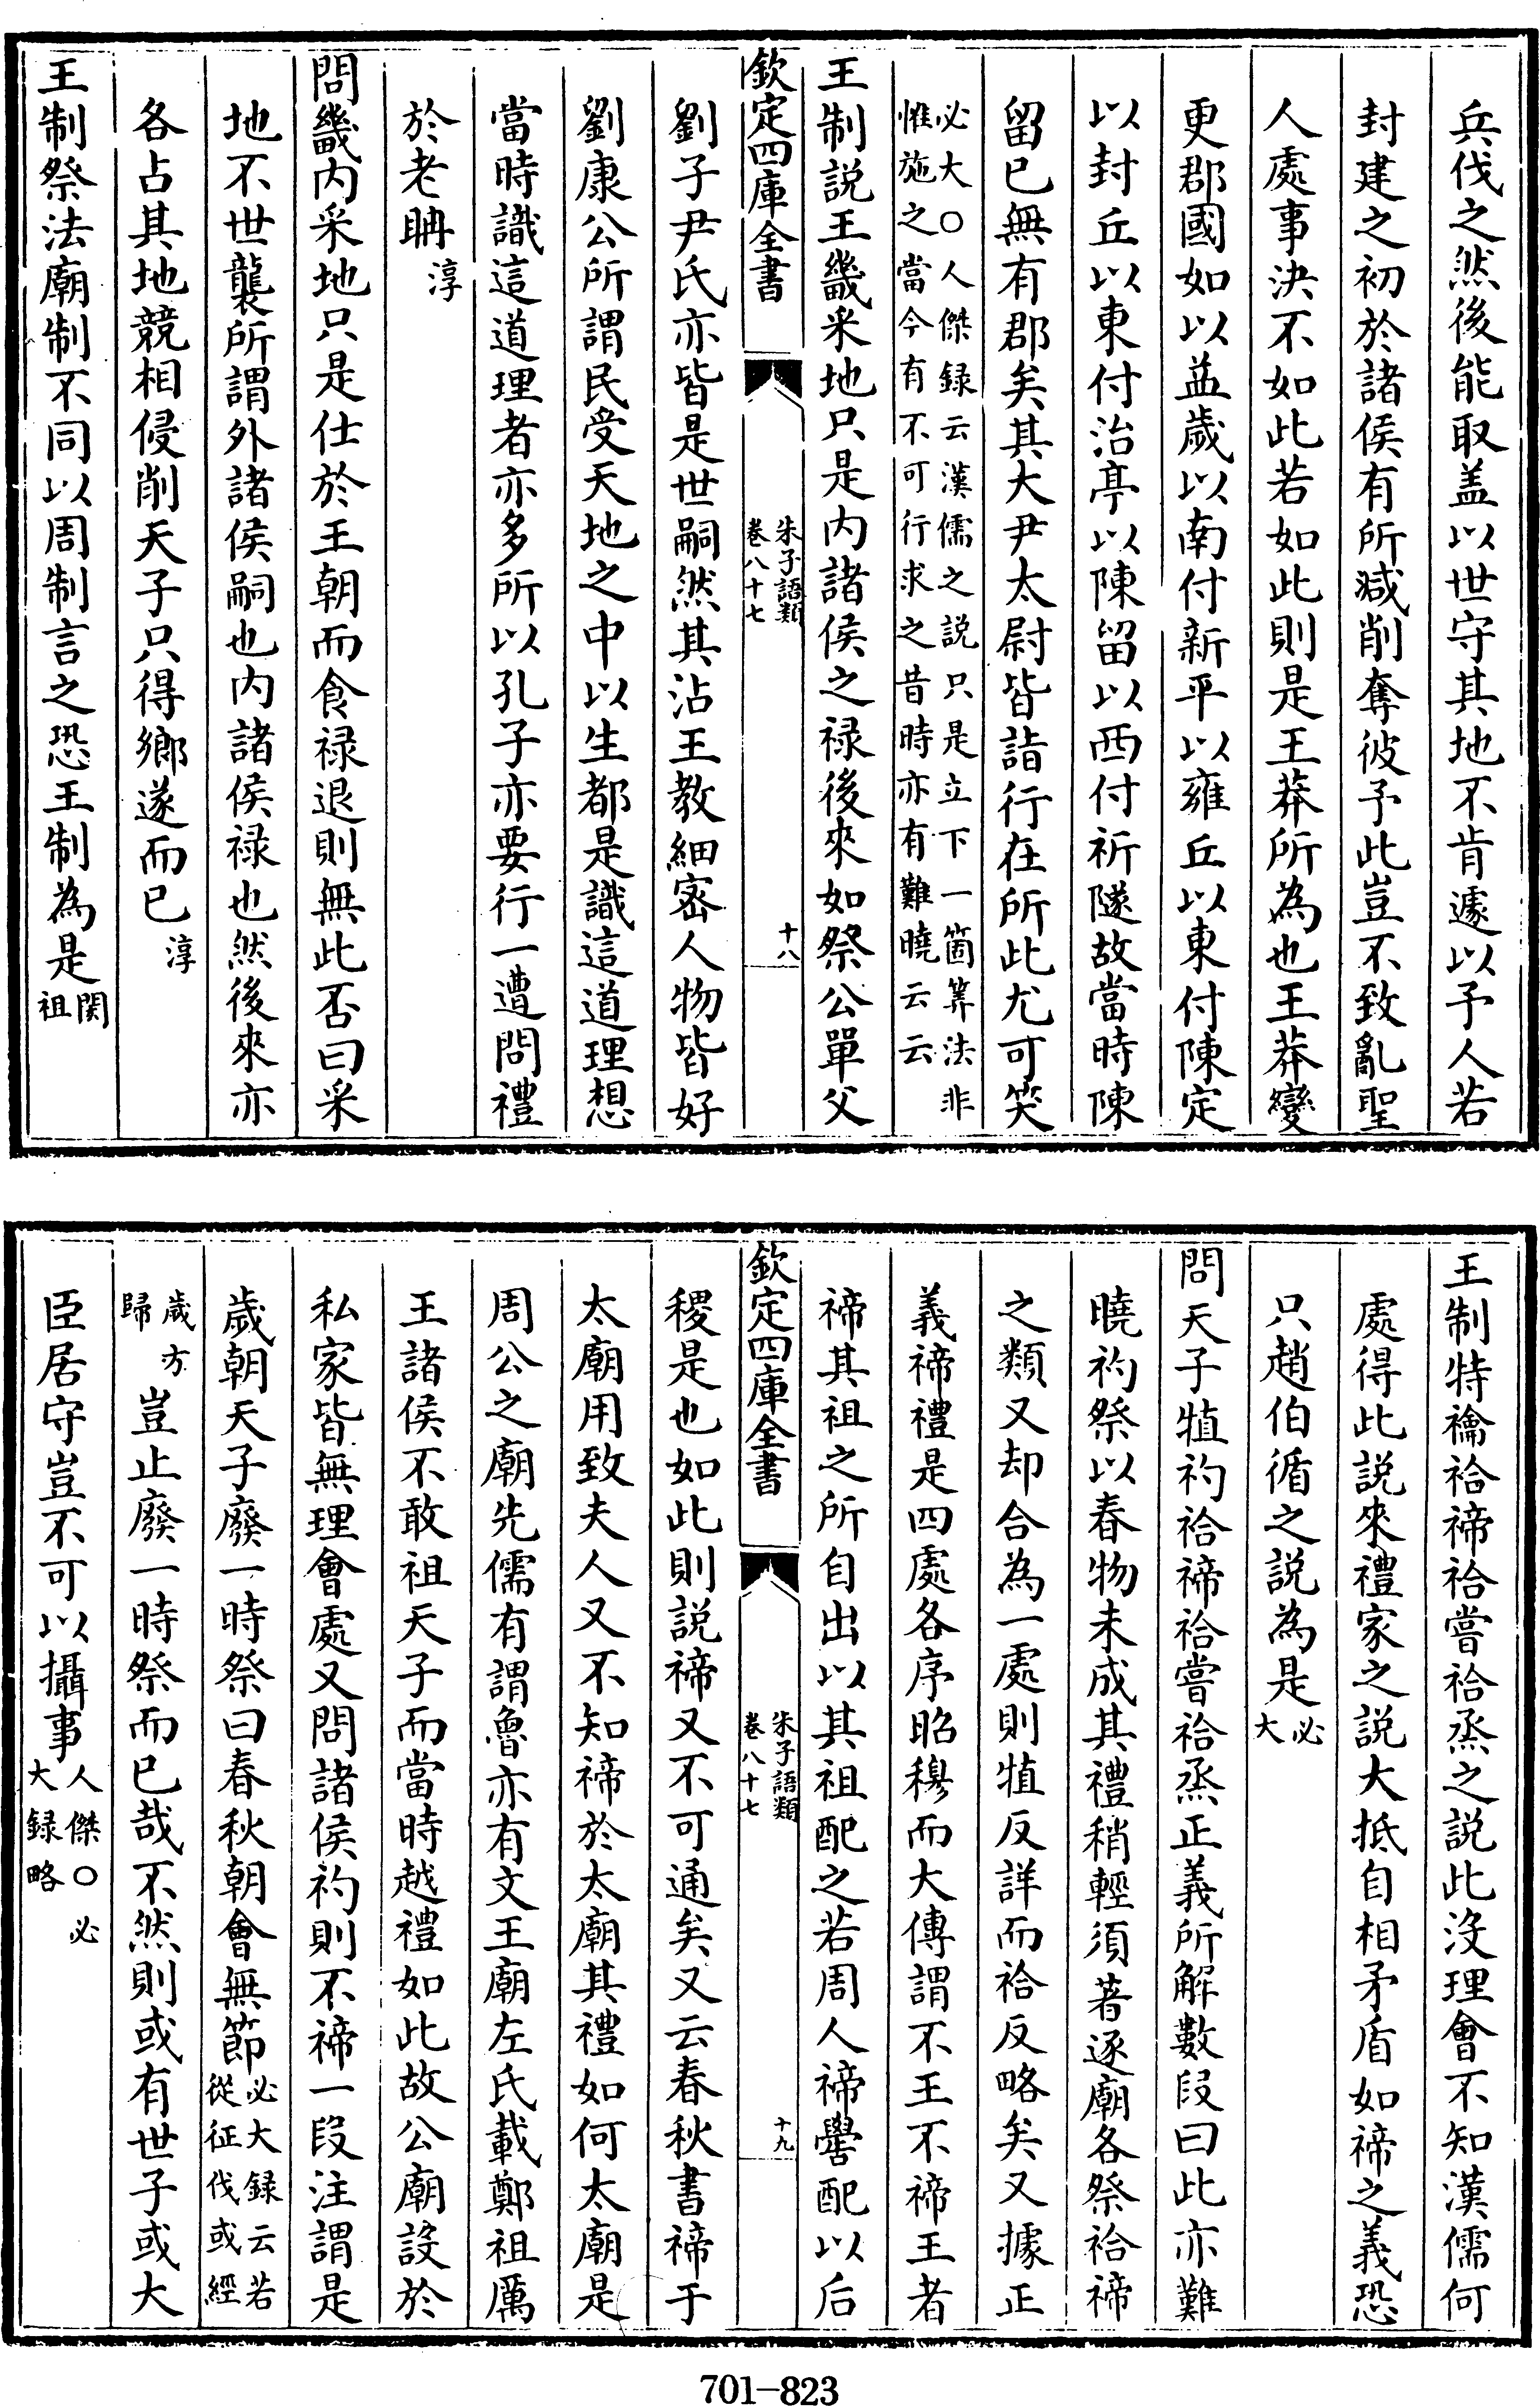 兵伐之然後能取盖以世守其地不肯遽以予人若
封建之初於諸侯有所減削奪彼予此豈不致亂聖
人處事決不如此若如此則是王莽所為也王莽變
更郡國如以益歲以南付新平以雍丘以東付陳定
以封丘以東付治亭以陳留以西付祈隧故當時陳
留已無有郡矣其大尹太尉皆詣行在所此尤可笑
必大○人傑録云漢儒之説只是立下一箇筭法非
惟施之當今有不可行求之昔時亦有難曉云云
王制説王畿采地只是内諸侯之禄後來如祭公單父
欽定四庫全書
朱子語類
卷八十七
十八
劉子尹氏亦皆是世嗣然其沾王教細宻人物皆好
劉康公所謂民受天地之中以生都是識這道理想
當時識這道理者亦多所以孔子亦要行一遭問禮
於老耼淳
問畿内采地只是仕於王朝而食禄退則無此否曰采
地不世襲所謂外諸侯嗣也内諸侯禄也然後來亦
各占其地競相侵削天子只得鄉遂而已淳
王制祭法廟制不同以周制言之恐王制為是閎祖
王制特禴祫禘祫嘗祫烝之説此没理會不知漢儒何
處得此説來禮家之説大抵自相矛盾如禘之義恐
只趙伯循之説為是必大
問天子犆礿祫禘祫嘗祫烝正義所解數段曰此亦難
曉礿祭以春物未成其禮稍輕須著逐廟各祭祫禘
之類又却合為一處則犆反詳而祫反略矣又據正
義禘禮是四處各序昭穆而大傳謂不王不禘王者
禘其祖之所自出以其祖配之若周人禘嚳配以后
欽定四庫全書
朱子語類
卷八十七
十九
稷是也如此則説禘又不可通矣又云春秋書禘于
太廟用致夫人又不知禘於太廟其禮如何太廟是
周公之廟先儒有謂魯亦有文王廟左氏載鄭祖厲
王諸侯不敢祖天子而當時越禮如此故公廟設於
私家皆無理會處又問諸侯礿則不禘一段注謂是
歲朝天子廢一時祭曰春秋朝會無節必大録云若從征伐或經
歲方歸豈止廢一時祭而已哉不然則或有世子或大
臣居守豈不可以攝事人傑○必大録略
701-823